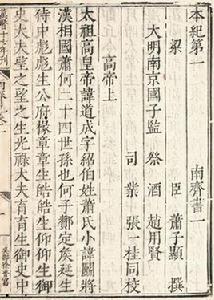 本紀第一 南齊書一
梁 臣 蕭子顯 撰
大明南京國子監 祭酒 趙用賢
司業 張一桂 同校
高帝上
太祖高皇帝諱道成字紹伯姓蕭氏小諱鬭將
漢相國蕭何二十四世孫也何子酇定侯延生
侍中彪彪生公府掾章章生皓皓生仰仰生御
史大夫望之望之生光祿大夫育育生御史中